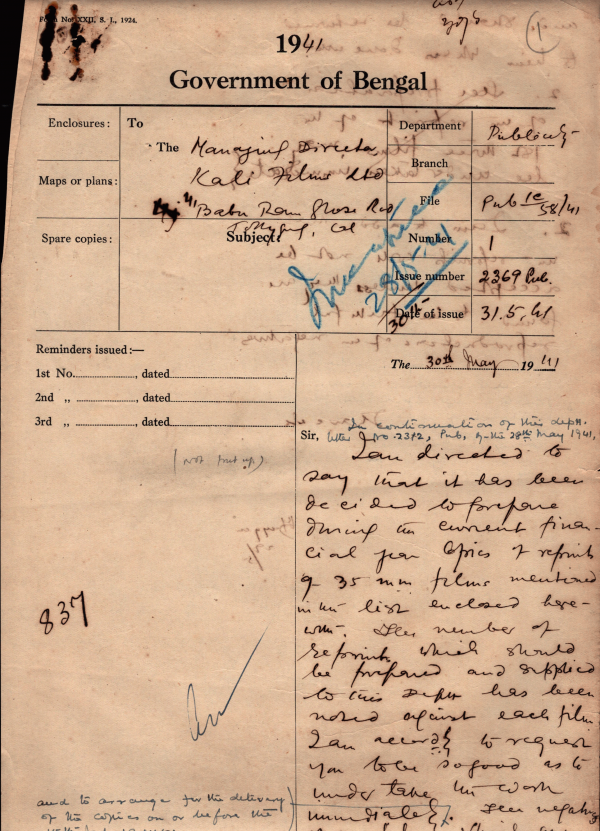 Form No. XXII, S. I., 1924.
1
1941
Government of Bengal
Enclosures:
To
The Managing Director
Kali Films Ltd
41 Babu Ram Ghose Rd
Tollygunj, Cal
Department
Publicity
Branch
Maps or plans:
File
Pub 1c/58/41
Spare copies:
Subject:
Number
1
Issue number
2369 Pub.
Date of issue
31.5.41
28/5-41
30th
Reminders issued:—
The 30th May 1941
1st No. , dated
2nd „ , dated
3rd „ , dated
In continuation of this dept.
letter No. 2372, Pub, of the 28th May 1941,
Sir,
(Not put up.)
I am directed to
say that it has been
decided to prepare
during the current finan-
cial year copies of reprints
of 35 mm films mentioned
in the list enclosed here-
with. The number of
reprints which should
be prepared and supplied
to this Dept has been
noted against each film
I am accordly to request
you to be so good as to
under take the work
immediately. The negatives
837
and to arrange for the delivery
of the copies on or before the